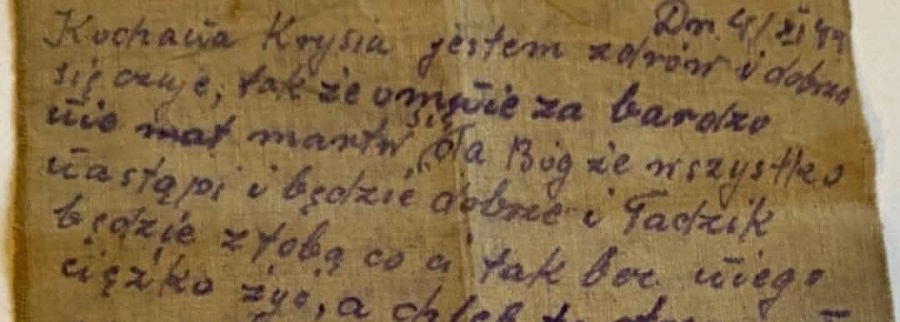 Dn. 4/XI 44
Kochana Krysiu jestem zdrów i dobrze
się czuje, tak że o mnie za bardzo
nie mart martw się Da Bóg że wszystko
nastąpi i będzie dobrze i Tadzik
będzie z tobą co ci tak bez niego
ciężko żyć, a